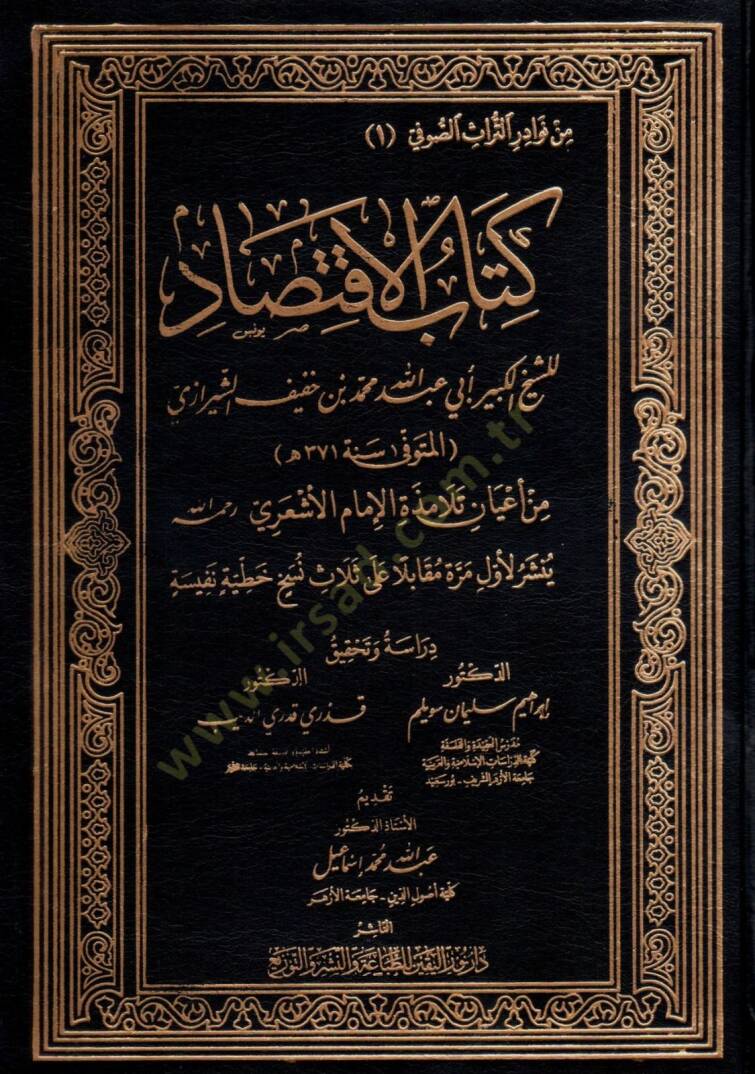 مِنْ نَوَادِرِ التُّرَاثِ الصُّوفِيّ (١)
كِتَابُ الاقْتِصَادِ
يونس
للشيخ الكبير أبي عبد الله محمد بن خفيف الشيرازي
(المتوفى سنة ٣٧١ هـ)
مِنْ أَعْيَانِ تَلَامِذَةِ الإِمَامِ الأَشْعَرِيّ رحمه الله
يُنْشَرُ لأوّلِ مَرَّة مُقَابلًا عَلَى ثَلَاثِ نُسَخٍ خَطِّيَّةٍ نَفِيسَةٍ
دِرَاسَةُ وَتَحْقِيقُ
الدكتور
الدكتور
إبراهيم سليمان سويلم
قدري قدري الديب
مدرس العقيدة والفلسفة
كلية الدراسات الإسلامية والعربية
جامعة الأزهر الشريف - بورسعيد
تقديم
الأستاذ الدكتور
عبد الله محمد إسماعيل
كلية أصول الدين - جامعة الأزهر
الناشر
دار نور اليقين للطباعة والنشر والتوزيع
www.irsad.com.tr